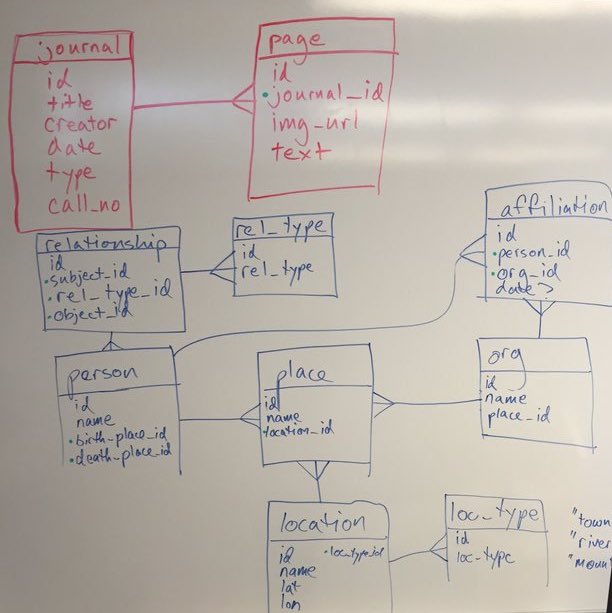 journal
id
title
creator
date
type
call_no
page
id
•journal_id
img_url
text
relationship
id
•subject_id
•rel_type_id
•object_id
rel_type
id
rel_type
affiliation
id
•person_id
•org_id
date?
person
id
name
•birth-place_id
•death-place_id
place
id
name
•location_id
org
id
name
place_id
location
id
•loctype_id
name
lat
lon
loc_type
id
loc_type
"town
"river
"moun